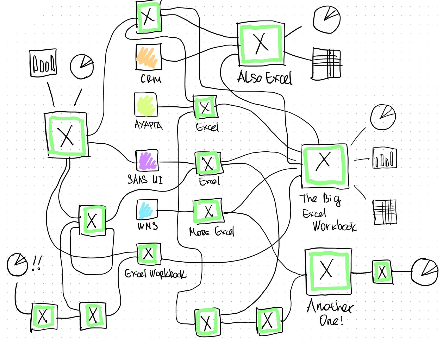 X
X
CRM
Also Excel
X
AXAPTA
X
Excel
X
SAAS UI
X
Excel
The Big
Excel
Workbook
X
WMS
X
More Excel
X
Excel Workbook
!!
X
X
Another
One!
X
X
X
X